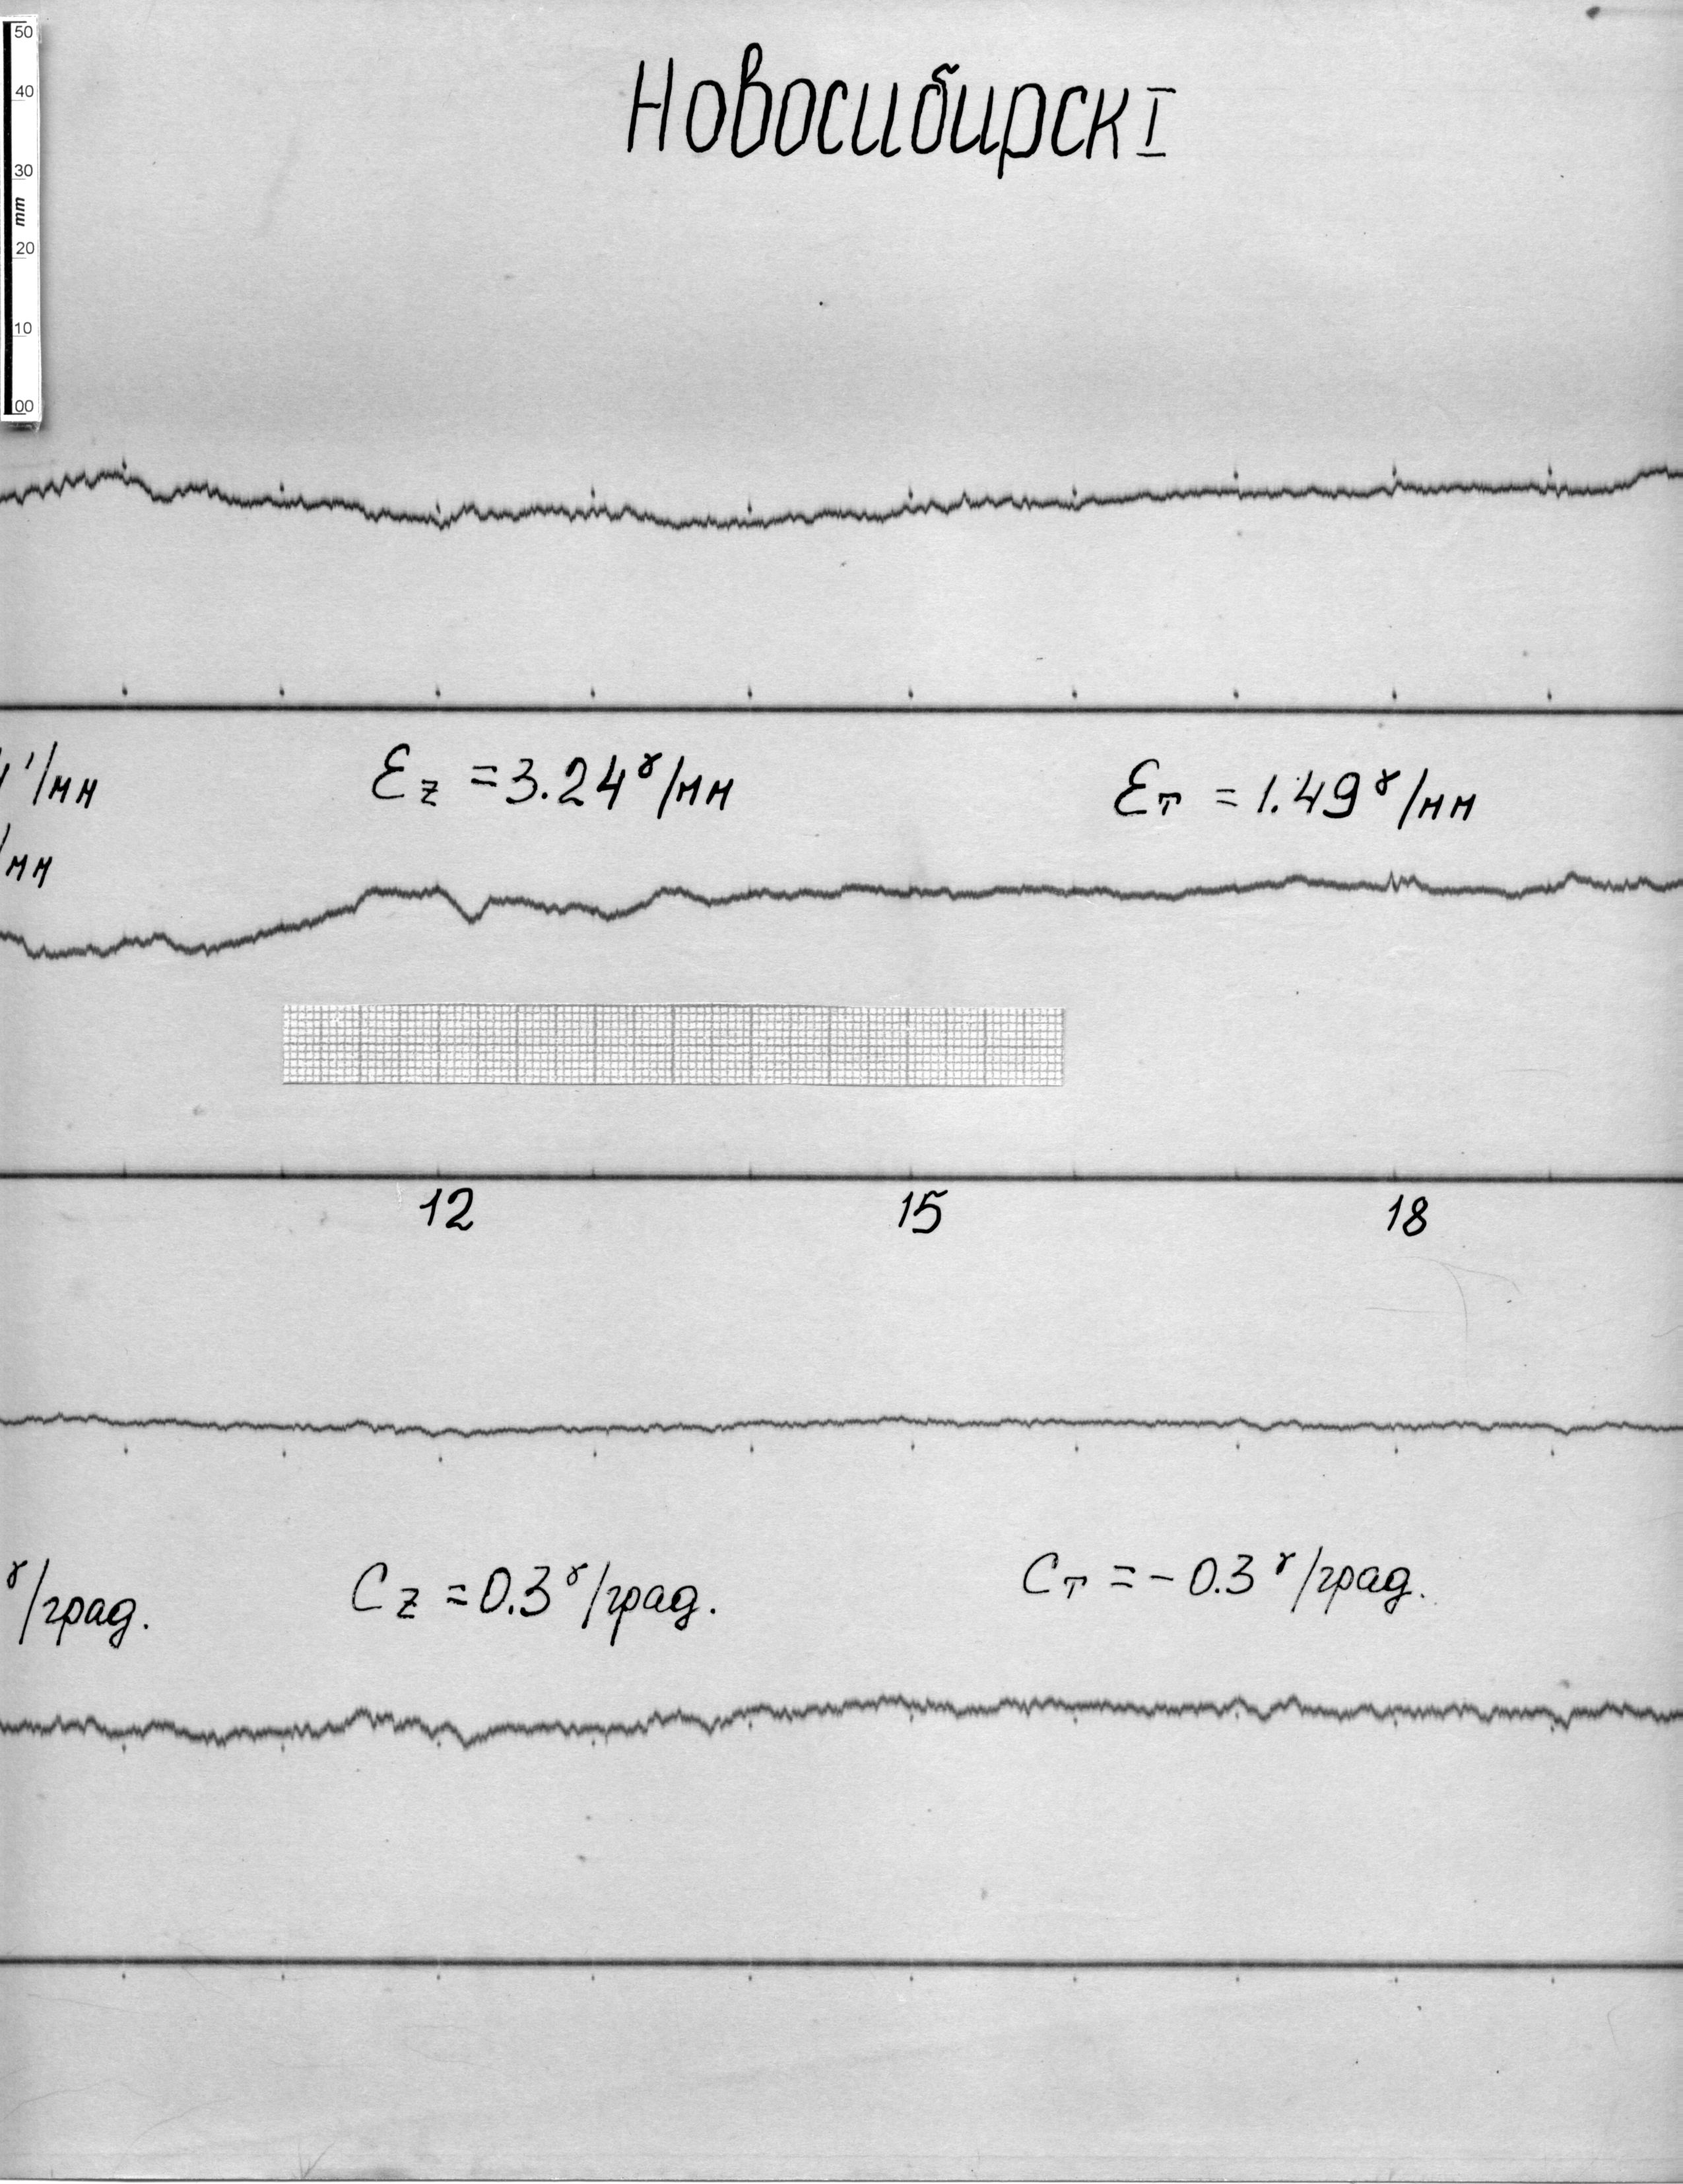 50
40
30
mm
20
10
00
Новосибирск I
'/мм
Ɛz = 3.24 ɣ/мм
Ɛт = 1.49 ɣ/мм
/мм
12 15 18
ɣ/град.
Cz = 0.3 ɣ/град.
Cт = -0.3 ɣ/град.